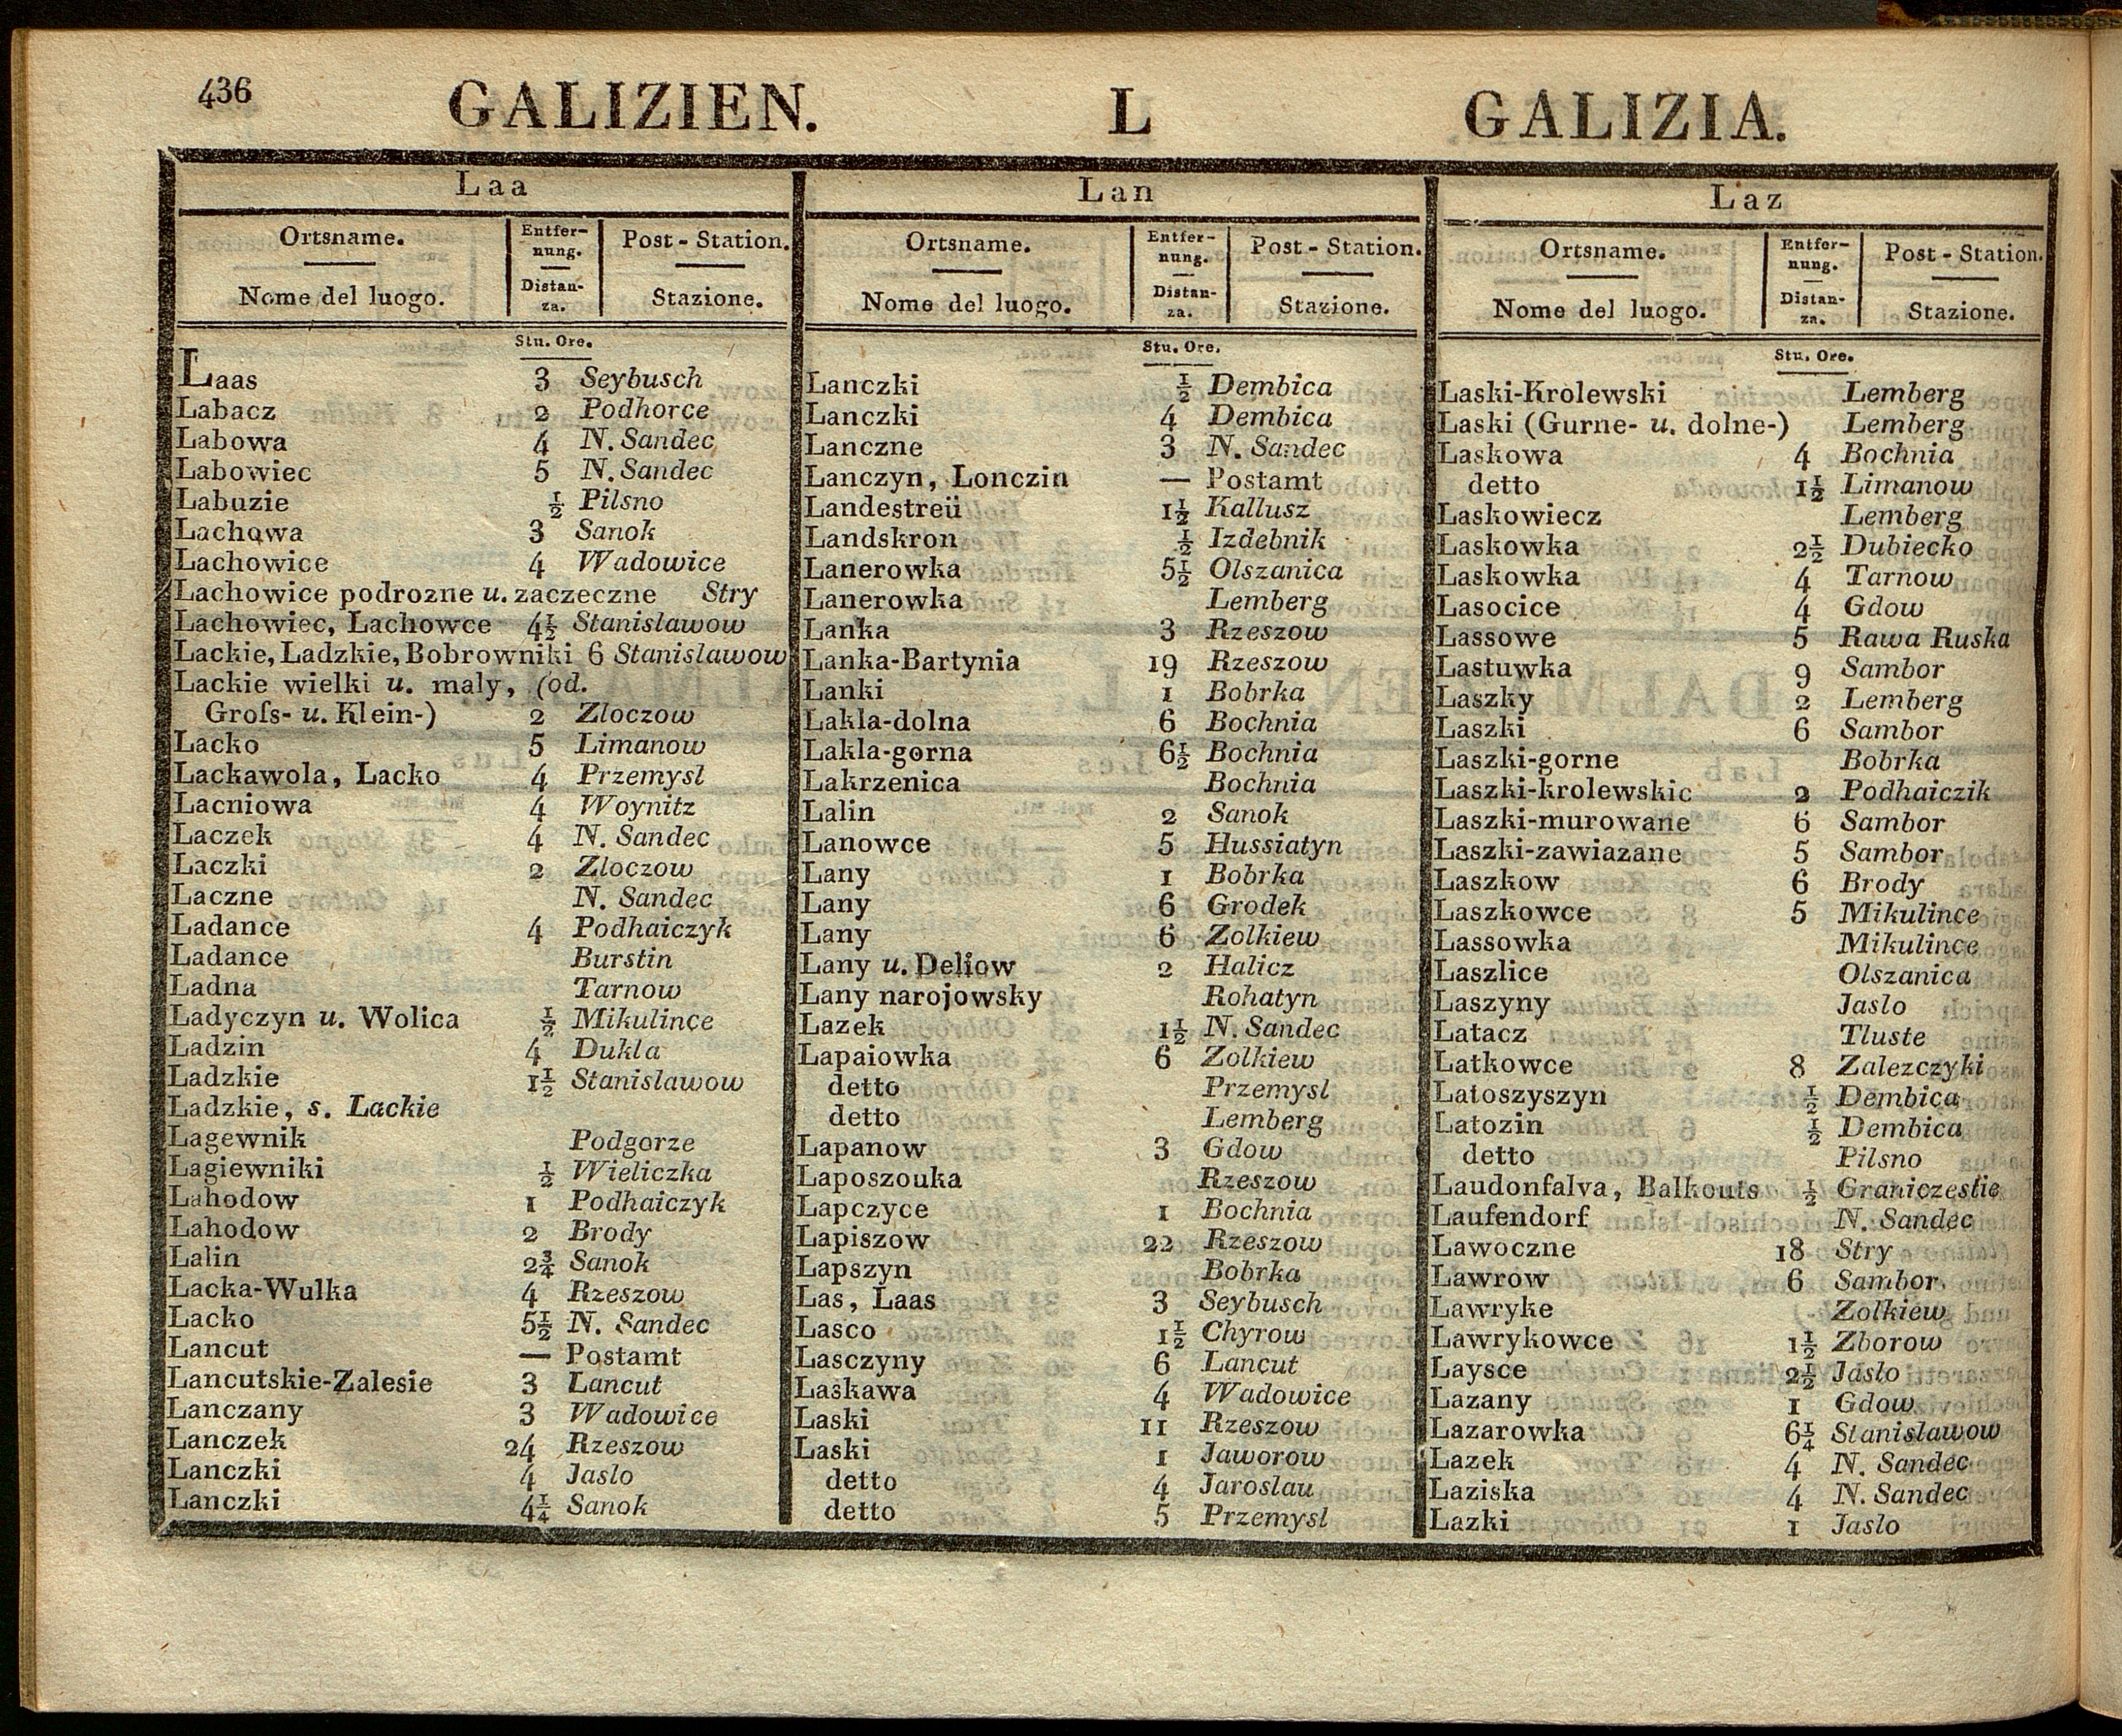 436 GALIZIEN. L GALIZIA.
Laa
Ortsname. Entfer- Post-Station.
nung.
Nome del luogo. Distan- Stazione.
za.
Stu. Ore.
Laas 3 Seybusch
Labacz 2 Podhorce
Labowa 4 N. Sandec
Labowiec 5 N. Sandec
Labuzie ½ Pilsno
Lachowa 3 Sanok
Lachowice 4 Wadowice
Lachowice podrozne u. zaczeczne Stry
Lachowiec, Lachowce 4½ Stanislawow
Lackie, Ladzkie, Bobrowniki 6 Stanislawow
Lackie wielki u. maly, (od.
Groſs- u. Klein-) 2 Zloczow
Lacko 5 Limanow
Lackawola, Lacko 4 Przemysl
Lacniowa 4 Woynitz
Laczek 4 N. Sandec
Laczki 2 Zloczow
Laczne N. Sandec
Ladance 4 Podhaiczyk
Ladance Burstin
Ladna Tarnow
Ladyczyn u. Wolica ½ Mikulince
Ladzin 4 Dukla
Ladzkie 1½ Stanislawow
Ladzkie, s. Lackie
Lagewnik Podgorze
Lagiewniki ½ Wieliczka
Lahodow 1 Podhaiczyk
Lahodow 2 Brody
Lalin 2¾ Sanok
Lacka-Wulka 4 Rzeszow
Lacko 5½ N. Sandec
Lancut — Postamt
Lancutskie-Zalesie 3 Lancut
Lanczany 3 Wadowice
Lanczek 24 Rzeszow
Lanczki 4 Jaslo
Lanczki 4¼ Sanok
Lan
Ortsname. Entfer- Post-Station.
nung.
Nome del luogo. Distan- Stazione.
za.
Stu. Ore.
Lanczki ½ Dembica
Lanczki 4 Dembica
Lanczne 3 N. Sandec
Lanczyn, Lonczin — Postamt
Landestreü 1½ Kallusz
Landskron ½ Izdebnik
Lanerowka 5½ Olszanica
Lanerowka Lemberg
Lanka 3 Rzeszow
Lanka-Bartynia 19 Rzeszow
Lanki 1 Bobrka
Lakla-dolna 6 Bochnia
Lakla-gorna 6½ Bochnia
Lakrzenica Bochnia
Lalin 2 Sanok
Lanowce 5 Hussiatyn
Lany 1 Bobrka
Lany 6 Grodek
Lany 6 Zolkiew
Lany u. Deliow 2 Halicz
Lany narojowsky Rohatyn
Lazek 1½ N. Sandec
Lapaiowka 6 Zolkiew
detto Przemysl
detto Lemberg
Lapanow 3 Gdow
Laposzouka Rzeszow
Lapczyce 1 Bochnia
Lapiszow 22 Rzeszow
Lapszyn Bobrka
Las, Laas 3 Seybusch
Lasco 1½ Chyrow
Lasczyny 6 Lancut
Laskawa 4 Wadowice
Laski 11 Rzeszow
Laski 1 Jaworow
detto 4 Jaroslau
detto 5 Przemysl
Laz
Ortsname. Entfer- Post-Station.
nung.
Nome del luogo. Distan- Stazione.
za.
Stu. Ore.
Laski-Krolewski Lemberg
Laski (Gurne- u. dolne-) Lemberg
Laskowa 4 Bochnia
detto 1½ Limanow
Laskowiecz Lemberg
Laskowka 2½ Dubiecko
Laskowka 4 Tarnow
Lasocice 4 Gdow
Lassowe 5 Rawa Ruska
Lastuwka 9 Sambor
Laszky 2 Lemberg
Laszki 6 Sambor
Laszki-gorne Bobrka
Laszki-krolewskic 2 Podhaiczik
Laszki-murowane 6 Sambor
Laszki-zawiazane 5 Sambor
Laszkow 6 Brody
Laszkowce 5 Mikulince
Lassowka Mikulince
Laszlice Olszanica
Laszyny Jaslo
Latacz Tluste
Latkowce 8 Zalezczyki
Latoszyszyn ½ Dembica
Latozin ½ Dembica
detto Pilsno
Laudonfalva, Balkouts ½ Graniczestie
Laufendorf N. Sandec
Lawoczne 18 Stry
Lawrow 6 Sambor
Lawryke Zolkiew
Lawrykowce 1½ Zborow
Laysce 2½ Jaslo
Lazany 1 Gdow
Lazarowka 6¼ Stanislawow
Lazek 4 N. Sandec
Laziska 4 N. Sandec
Lazki 1 Jaslo